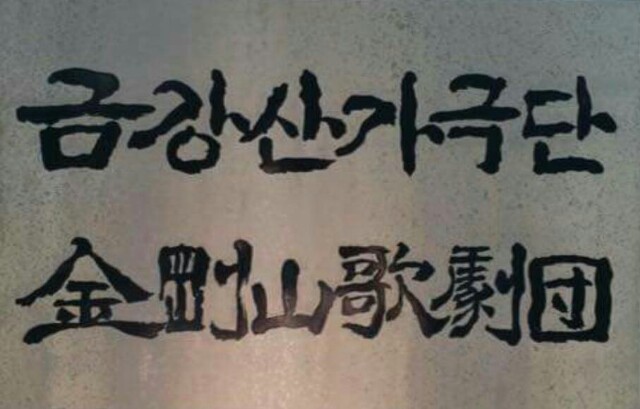 금강산가극단
金剛山歌劇団